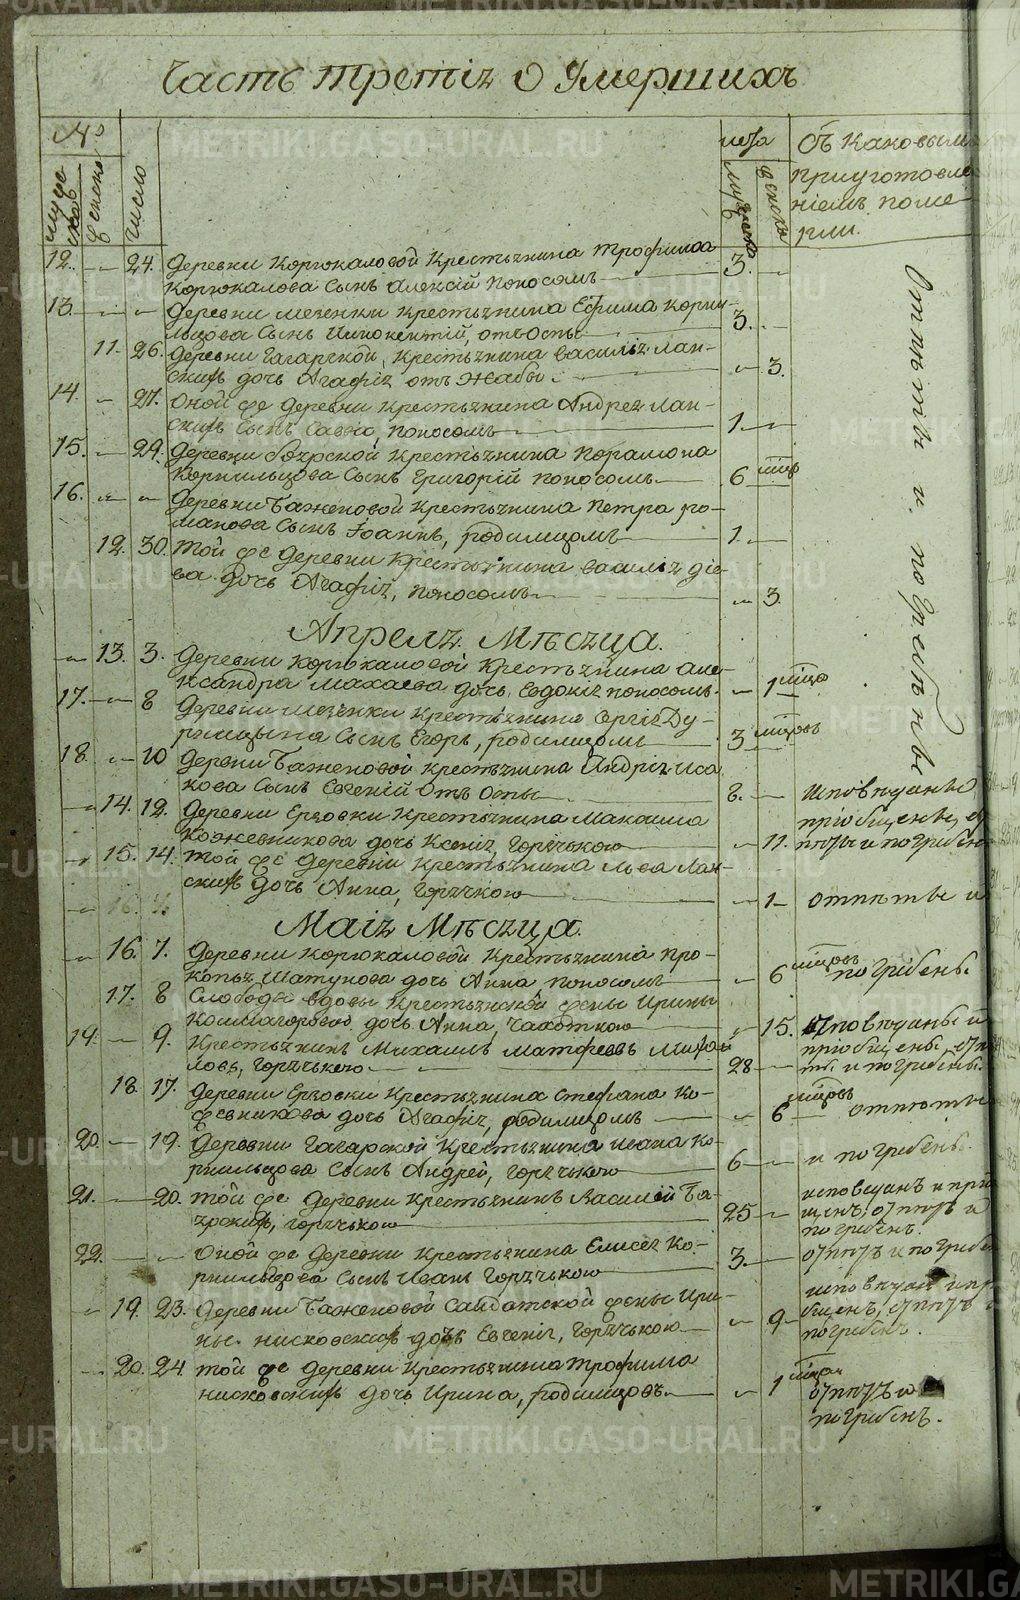 Часть третія о Умершихъ
№ лѣта Съ каковымъ
мужеска женска число мужеска женска приуготовле
ніемъ поме
рли.
12. — 24. деревни Корюкаловой крестьянина Трофима
Корюкалова сынъ Алексій поносомъ 3. —
13. — „ деревни мезенки крестьянина Ефима корни
льцова сынъ Иннокентій, отъ оспы 3. —
11. 26. деревни Гагарской, крестьянина василья лан-
скихъ дочь Агафія отъ жабы — 3.
14. — 27. оной же деревни крестьянина Андрея лан-
скихъ сынъ Савва, поносомъ 1. —
15. — 29. деревни боярской крестьянина Парамона
Корнильцова сынъ Григорій поносомъ 6 —
16. „ „ деревни Баженовой крестьянина Петра ро-
манова сынъ Іоаннъ, родимцомъ 1. —
12. 30. той же деревни крестьянина василья
дочь Агафія, поносомъ — 3.
Отпѣты и погребены
Апреля Мѣсяца.
— 13. 3. деревни Корюкаловой крестьянина але-
ксандра Махаева дочь Евдокія поносомъ — 1
17. — 8 деревни мезенки крестьянина Сергія Ду-
рницына сынъ Егоръ, родимцомъ 3 —
18. — 10 деревни Баженовой крестьянина Андрея иса
кова сынъ Евгеній отъ оспы 8. —
— 14. 12. деревни Ерзовки крестьянина Максима
Кожевникова дочь Ксенія, горячкою — 11.
— 15. 14. той же деревни крестьянина льва лан-
скихъ дочь Анна, горячкою — 1 отпѣты и
Маія Мѣсяца.
— 16. 7. деревни Корюкаловой крестьянина про-
копья Шатунова дочь Анна поносомъ — 6 погребены.
17. 8 Слободы вдовы крестьянской жены Ирины
дочь Анна, чахоткою — 15.
19. — 9. крестьянинъ Михаилъ Матфеевъ
горячкою 28 — и погребены.
18. 17. деревни Ерзовки крестьянина стефана Ко-
жевникова дочь Агафія, родимцомъ — 6 отпѣты
20. — 19. деревни Гагарской крестьянина ивана ко-
рнильцова сынъ Андрей, горячкою 6 — и погребены.
21. — 20. той же деревни крестьянинъ Василій Бо-
ярскихъ, горячкою 25 —
погребенъ.
22. — „ оной же деревни крестьянина Елисея Ко-
рнильцова сынъ иванъ горячкою 3. —
— 19. 23. деревни Баженовой салдатской жены Ири-
ны нисковскихъ дочь Евгенія, горячкою — 9
погребенъ.
— 20. 24. той же деревни крестьянина трофима
нисковскихъ дочь Ирина, родимцовъ — 1
погребенъ.
METRIKI.GASO-URAL.RU